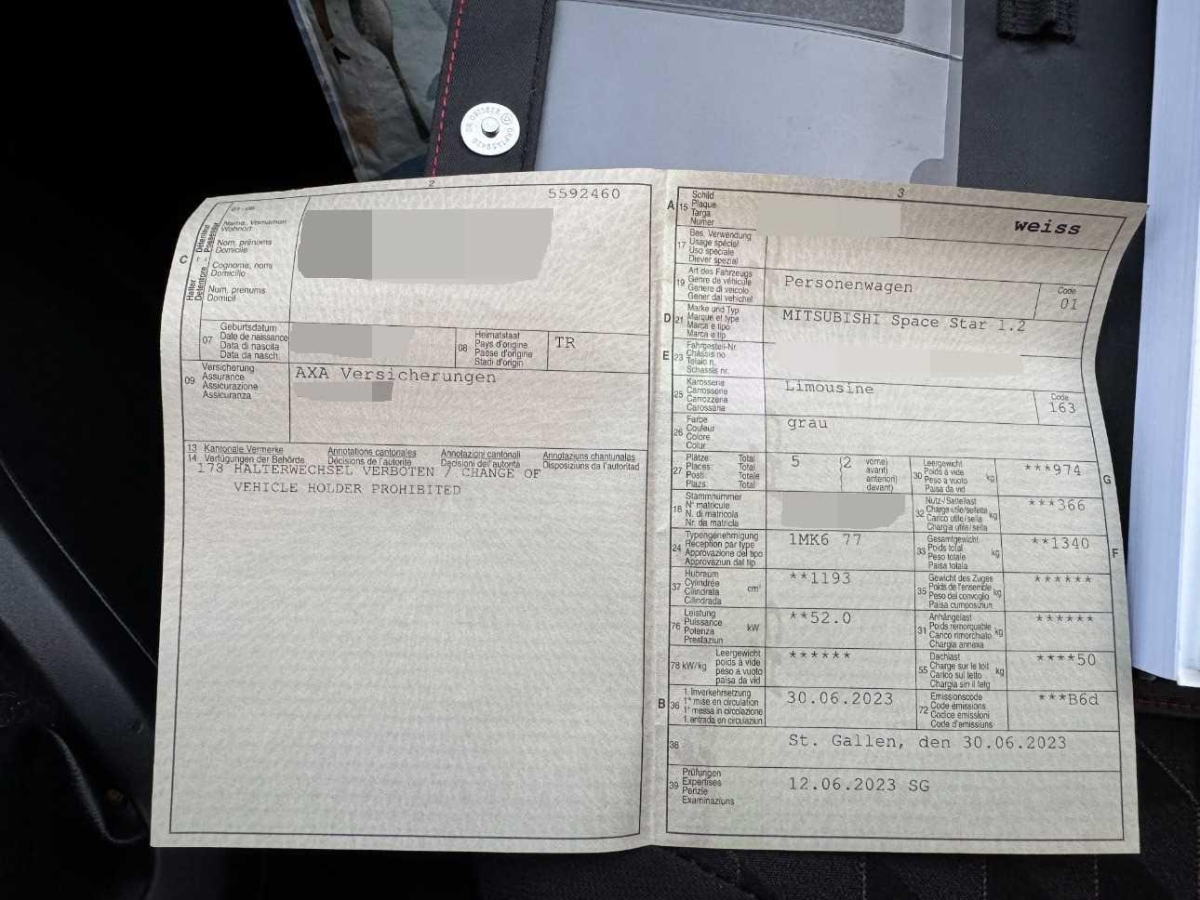 2
5592460
C
01-06
Halter
Détenteur
Detentore
Possessur
Name, Vornamen
Wohnort
Nom, prénoms
Domicile
Cognome, nomi
Domicilio
Num, prenums
Domicil
07
Geburtsdatum
Date de naissance
Data di nascita
Data da nasch.
08
Heimatstaat
Pays d'origine
Paese d'origine
Stadi d'origin
TR
09
Versicherung
Assurance
Assicurazione
Assicuranza
AXA Versicherungen
13 Kantonale Vermerke Annotations cantonales Annotazioni cantonali Annotaziuns chantunalas
14 Verfügungen der Behörde Décisions de l'autorité Decisioni dell'autorità Disposiziuns da l'autoritad
178 HALTERWECHSEL VERBOTEN / CHANGE OF
VEHICLE HOLDER PROHIBITED
3
A 15
Schild
Plaque
Targa
Numer
weiss
17
Bes. Verwendung
Usage spécial
Uso speciale
Diever spezial
19
Art des Fahrzeugs
Genre de véhicule
Genere di veicolo
Gener dal vehichel
Personenwagen
Code
01
D 21
Marke und Typ
Marque et type
Marca e tipo
Marca e tip
MITSUBISHI Space Star 1.2
E 23
Fahrgestell-Nr.
Châssis no
Telaio n.
Schassis nr.
25
Karosserie
Carrosserie
Carrozzeria
Carossaria
Limousine
Code
163
26
Farbe
Couleur
Colore
Colur
grau
27
Plätze: Total
Places: Total
Posti: Totale
Plazs: Total
5
2
vorne)
avant)
anteriori)
davant)
30
Leergewicht
Poids à vide
Peso a vuoto
Paisa da vid
kg
***974
G
18
Stammnummer
N° matricule
N. di matricola
Nr. da matricla
32
Nutz-/Sattellast
Charge utile/sellette
Carico utile/sella
Chargia utila/sella
kg
***366
24
Typengenehmigung
Réception par type
Approvazione del tipo
Approvaziun dal tip
1MK6 77
33
Gesamtgewicht
Poids total
Peso totale
Paisa totala
kg
**1340
F
37
Hubraum
Cylindrée
Cilindrata
Cilindrada
cm³
**1193
35
Gewicht des Zuges
Poids de l'ensemble
Peso del convoglio
Paisa cumposiziun
kg
******
76
Leistung
Puissance
Potenza
Prestaziun
kW
**52.0
31
Anhängelast
Poids remorquable
Carico rimorchiato
Chargia annexa
kg
******
78 kW/kg
Leergewicht
poids à vide
peso a vuoto
paisa da vid
******
55
Dachlast
Charge sur le toit
Carico sul tetto
Chargia sin il tetg
kg
****50
B 36
1. Inverkehrsetzung
1re mise en circulation
1a messa in circolazione
1. entrada en circulaziun
30.06.2023
72
Emissionscode
Code émissions
Codice emissioni
Code d'emissiuns
***B6d
38
St. Gallen, den 30.06.2023
39
Prüfungen
Expertises
Perizie
Examinaziuns
12.06.2023 SG